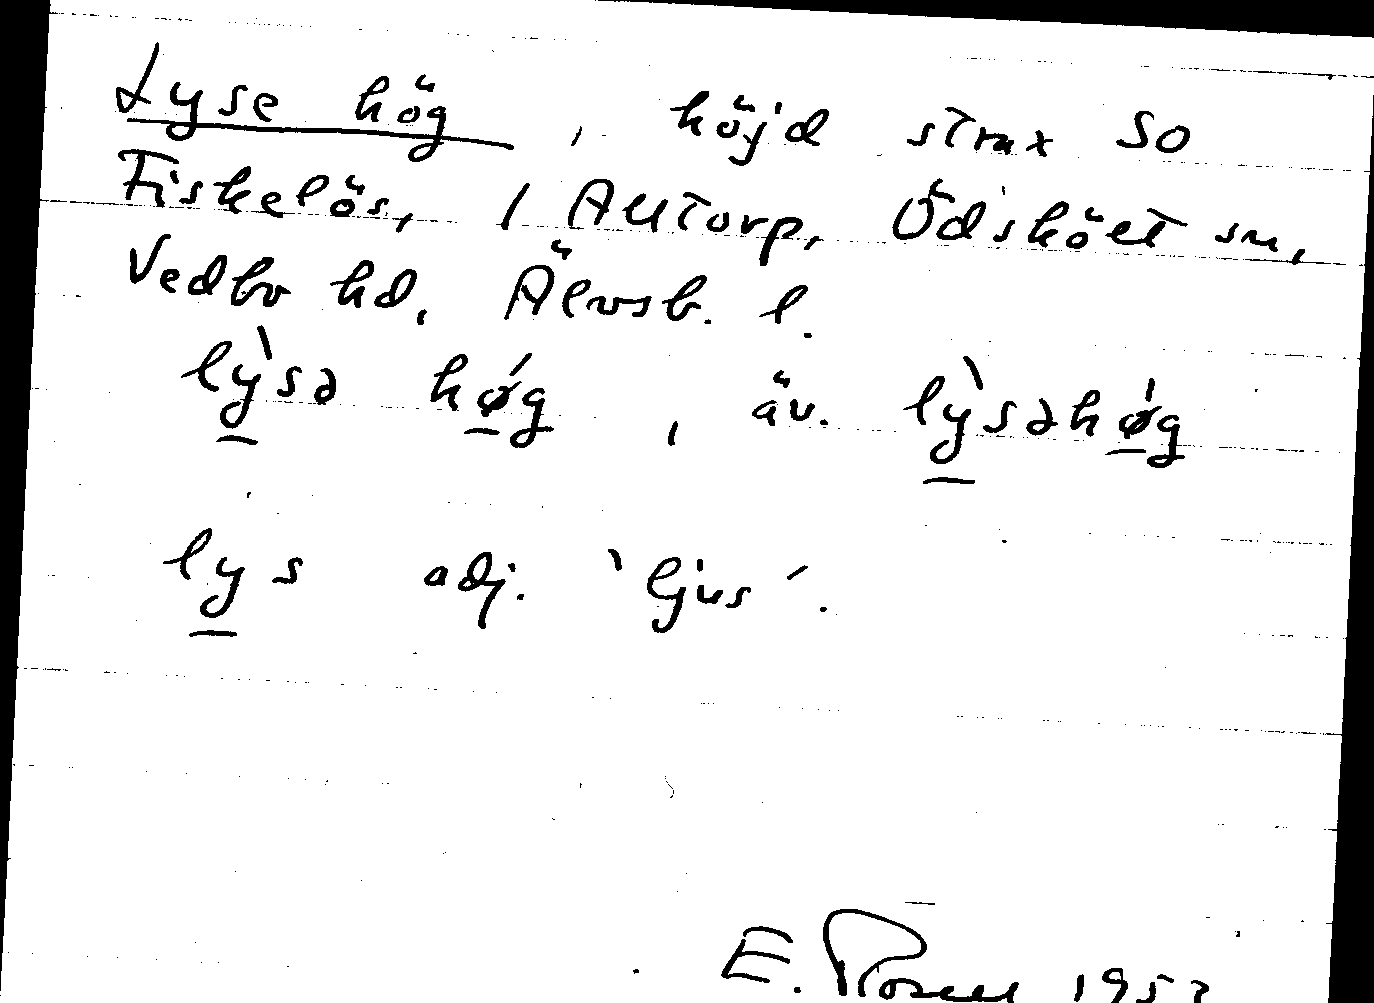 Lyse hög, höjd strax SO
Fiskelös, / Alltorp, Ödskölt sn,
Vedbo hd, Älvsb. l.
lỳsə hǿg, äv. lỳsəhǿg
lys adj. 'ljus'.
E.